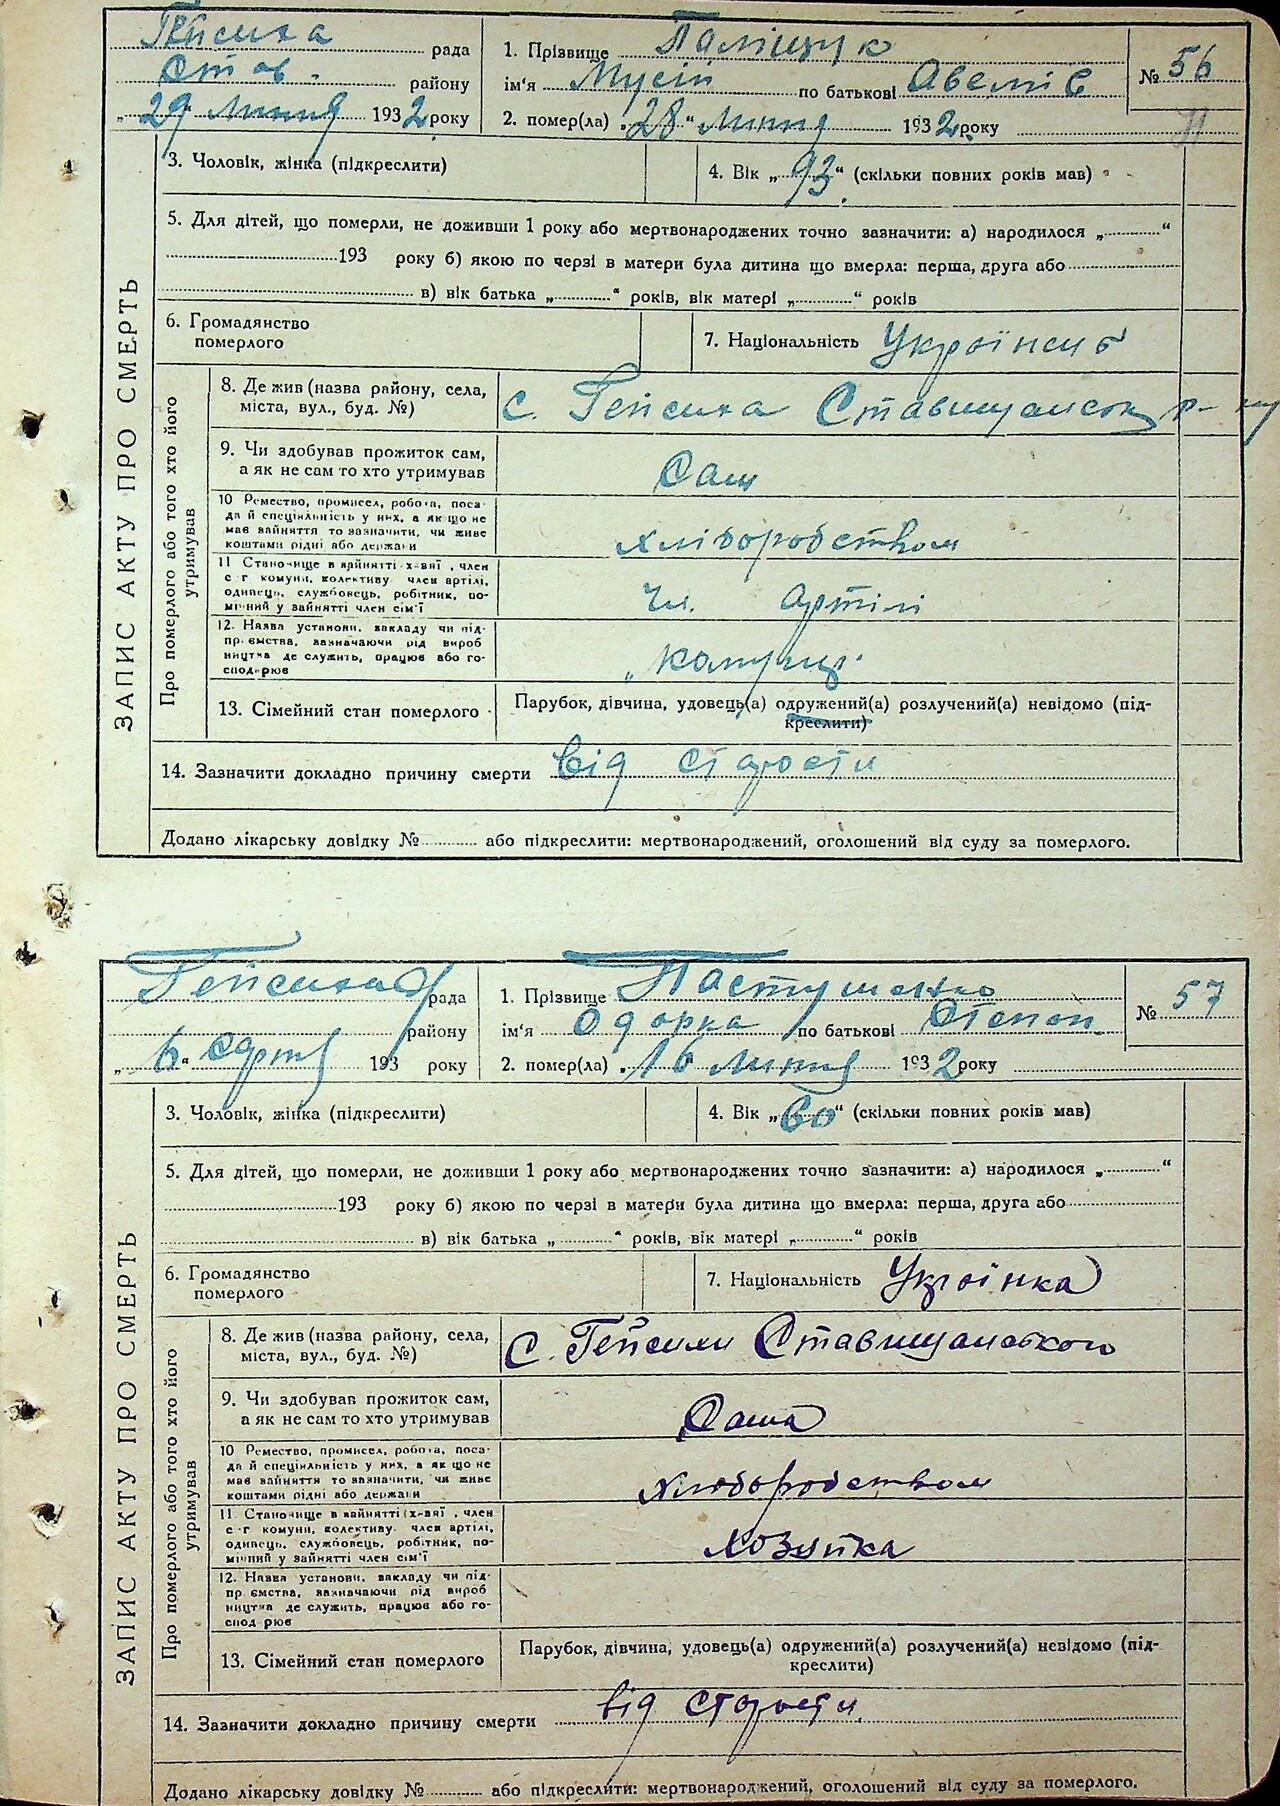 Гейсиха рада
Став. району
„29 Липня 1932 року
1. Прізвище Паліщук
ім'я Мусій по батькові
2. помер(ла) „28" Липня 1932 року
№ 56
3. Чоловік, жінка (підкреслити)
4. Вік „93" (скільки повних років мав)
5. Для дітей, що померли, не доживши 1 року або мертвонароджених точно зазначити: а) народилося „ "
193 року б) якою по черзі в матери була дитина що вмерла: перша, друга або
в) вік батька „ " років, вік матері „ " років
6. Громадянство
померлого
7. Національність Українець
ЗАПИС АКТУ ПРО СМЕРТЬ
Про померлого або того хто його
утримував
8. Де жив (назва району, села,
міста, вул., буд. №)
с. Гейсиха Ставищанськ р-ну
9. Чи здобував прожиток сам,
а як не сам то хто утримував
Сам
10 Ремество, промисел, робота, поса-
да й спеціяльність у них, а якщо не
має зайняття то зазначити, чи живе
коштами рідні або держави
хліборобством
11 Становище в зайнятті (х-вяї, член
с-г комуни, колективу член артілі,
одинець, службовець, робітник, по-
мічний у зайнятті член сім'ї
Чл. артілі
12. Назва установи, закладу чи під-
приємства, зазначаючи рід вироб
ництва де служить, працює або го-
сподарює
13. Сімейний стан померлого
Парубок, дівчина, удовець(а) одружений(а) розлучений(а) невідомо (під-
креслити)
14. Зазначити докладно причину смерти від старости
Додано лікарську довідку № або підкреслити: мертвонароджений, оголошений від суду за померлого.
Гейсиха рада
району
„6" 193 року
1. Прізвище Пастушенко
ім'я Одарка по батькові Степан
2. помер(ла) „16 Липня 1932 року
№ 57
3. Чоловік, жінка (підкреслити)
4. Вік „60" (скільки повних років мав)
5. Для дітей, що померли, не доживши 1 року або мертвонароджених точно зазначити: а) народилося „ "
193 року б) якою по черзі в матери була дитина що вмерла: перша, друга або
в) вік батька „ " років, вік матері „ " років
6. Громадянство
померлого
7. Національність Українка
ЗАПИС АКТУ ПРО СМЕРТЬ
Про померлого або того хто його
утримував
8. Де жив (назва району, села,
міста, вул., буд. №)
с. Гейсихи Ставищанського
9. Чи здобував прожиток сам,
а як не сам то хто утримував
Сама
10 Ремество, промисел, робота, поса-
да й спеціяльність у них, а якщо не
має зайняття то зазначити, чи живе
коштами рідні або держави
хліборобством
11 Становище в зайнятті (х-вяї, член
с-г комуни, колективу член артілі,
одинець, службовець, робітник, по-
мічний у зайнятті член сім'ї
хозяйка
12. Назва установи, закладу чи під-
приємства, зазначаючи рід вироб
ництва де служить, працює або го-
сподарює
13. Сімейний стан померлого
Парубок, дівчина, удовець(а) одружений(а) розлучений(а) невідомо (під-
креслити)
14. Зазначити докладно причину смерти від старости
Додано лікарську довідку № або підкреслити: мертвонароджений, оголошений від суду за померлого.